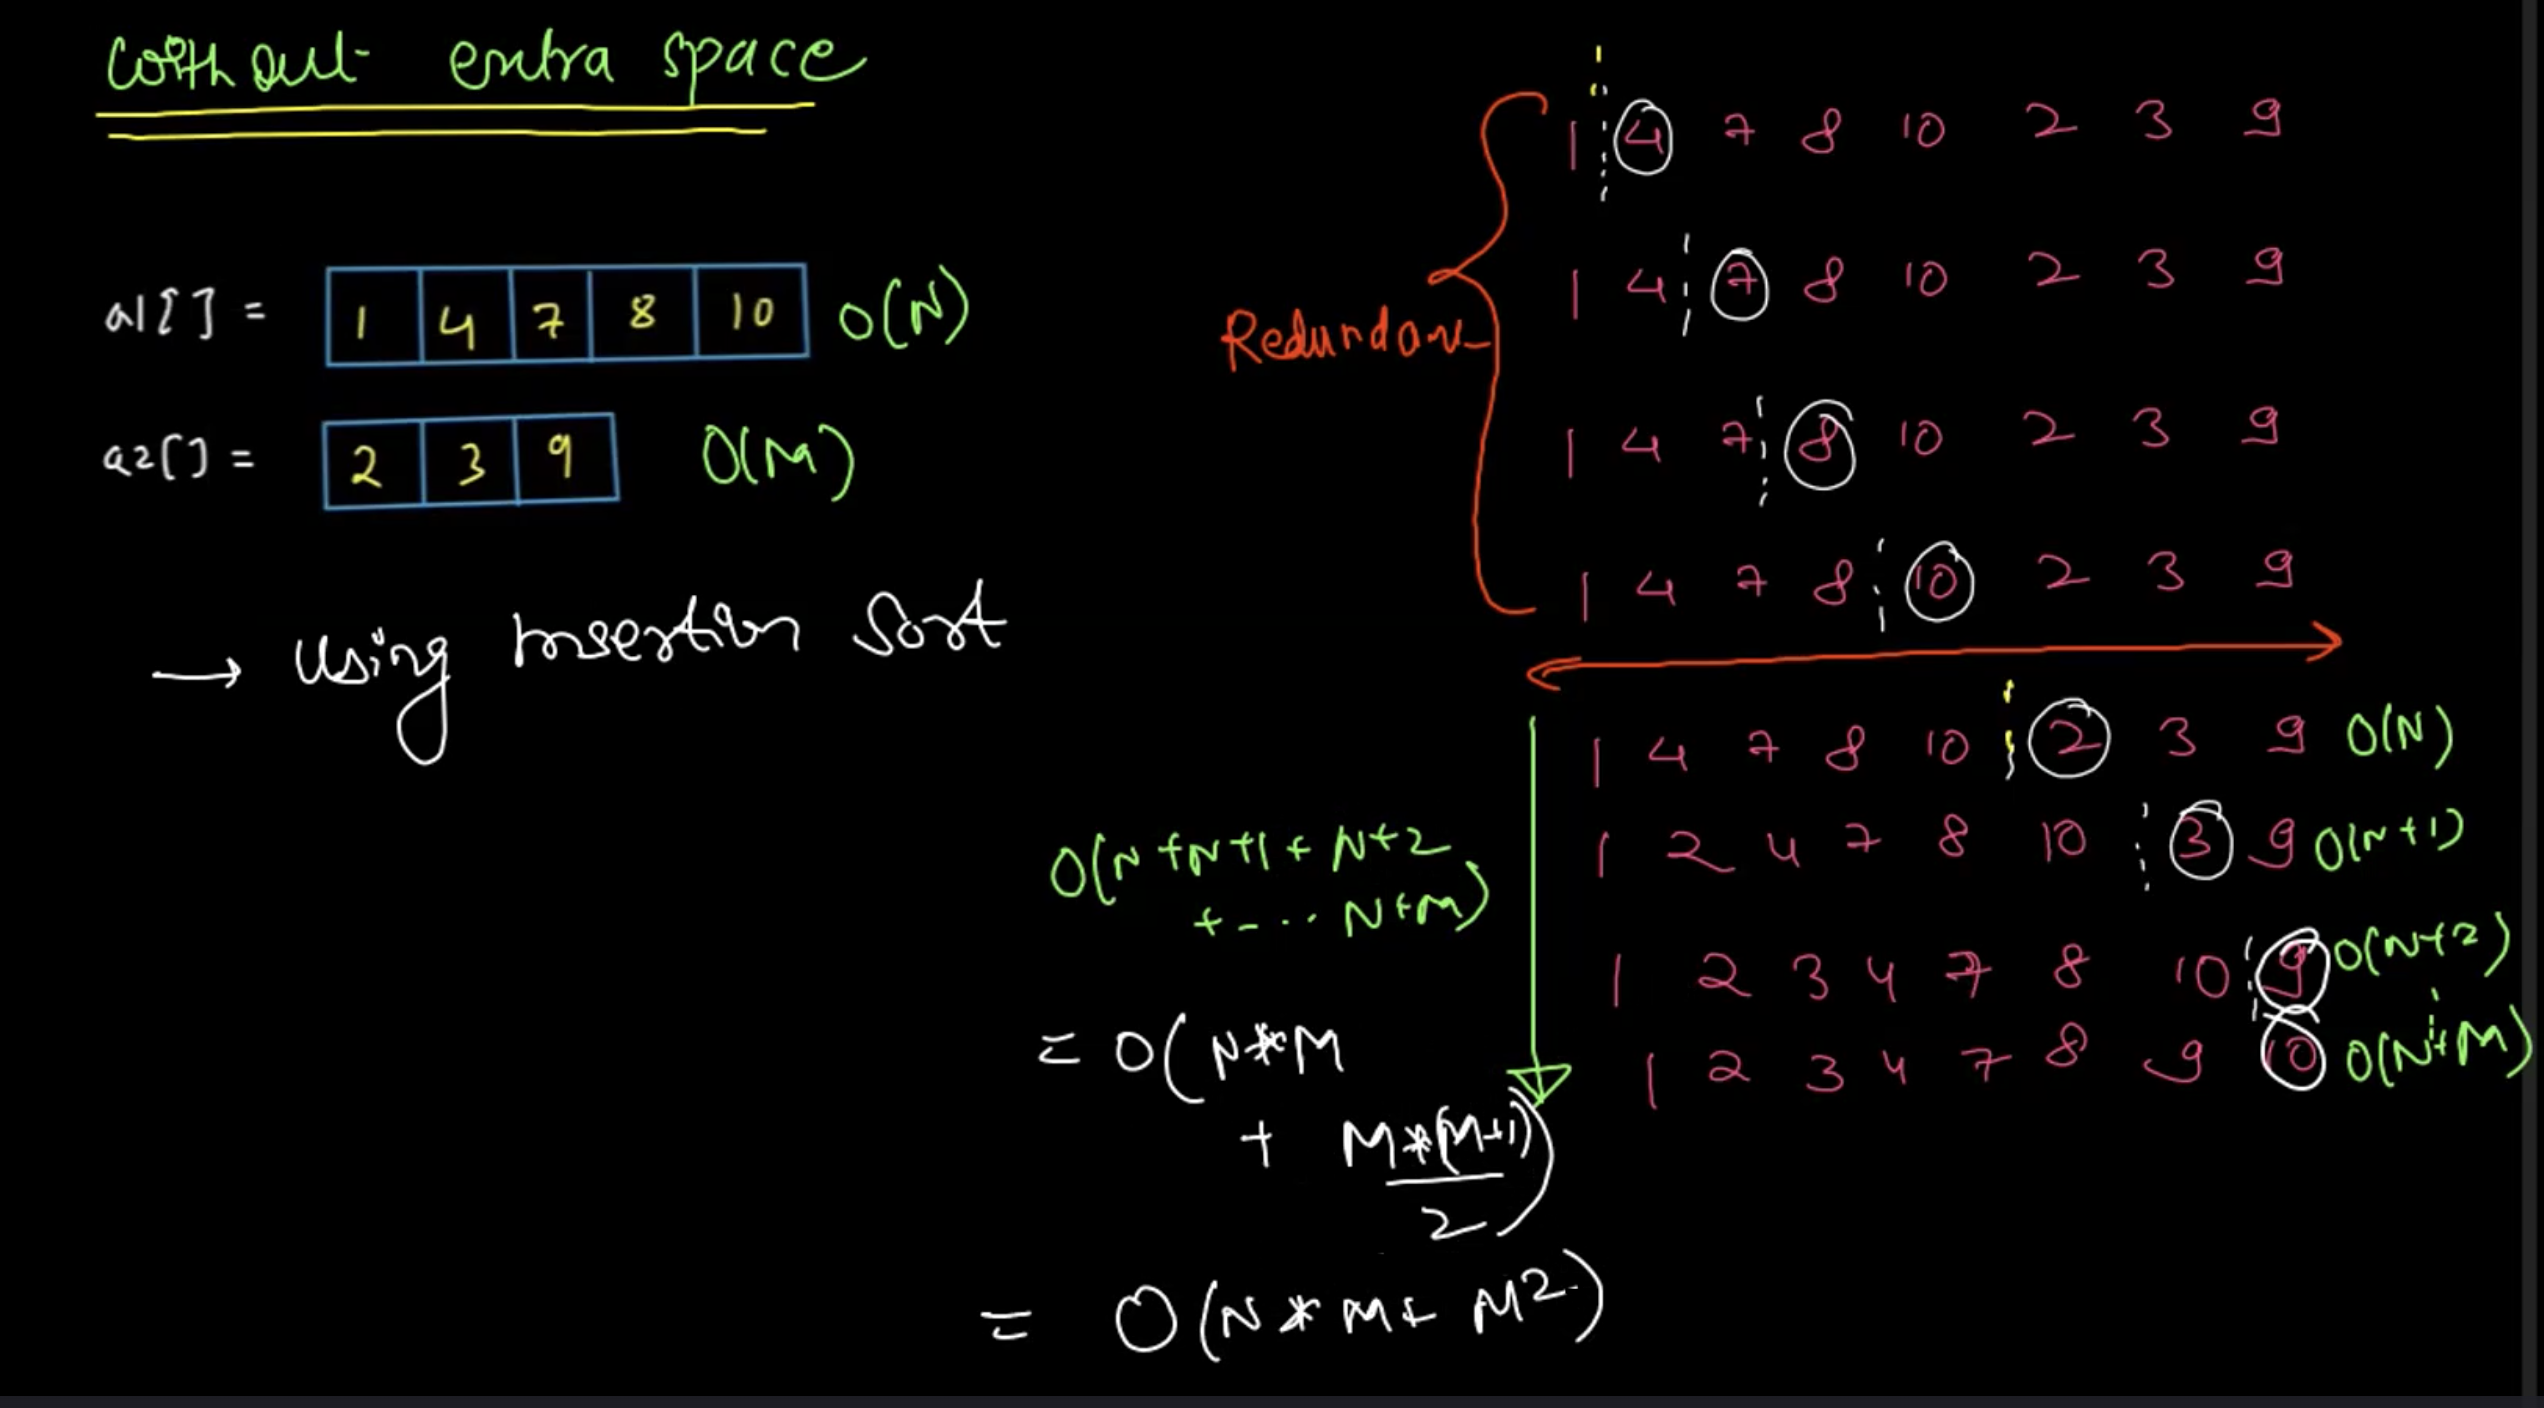 without extra space
a1[] = 1 4 7 8 10 O(N)
a2[] = 2 3 9 O(M)
→ Using Insertion Sort
Redundant
1 4 7 8 10 2 3 9
1 4 7 8 10 2 3 9
1 4 7 8 10 2 3 9
1 4 7 8 10 2 3 9
1 4 7 8 10 2 3 9 O(N)
1 2 4 7 8 10 3 9 O(N+1)
1 2 3 4 7 8 10 9 O(N+2)
1 2 3 4 7 8 9 10 O(N+M)
O(N+N+1+N+2
+-... N+M)
= O(N*M
+ M*(M+1)
2)
= O(N*M+M²)